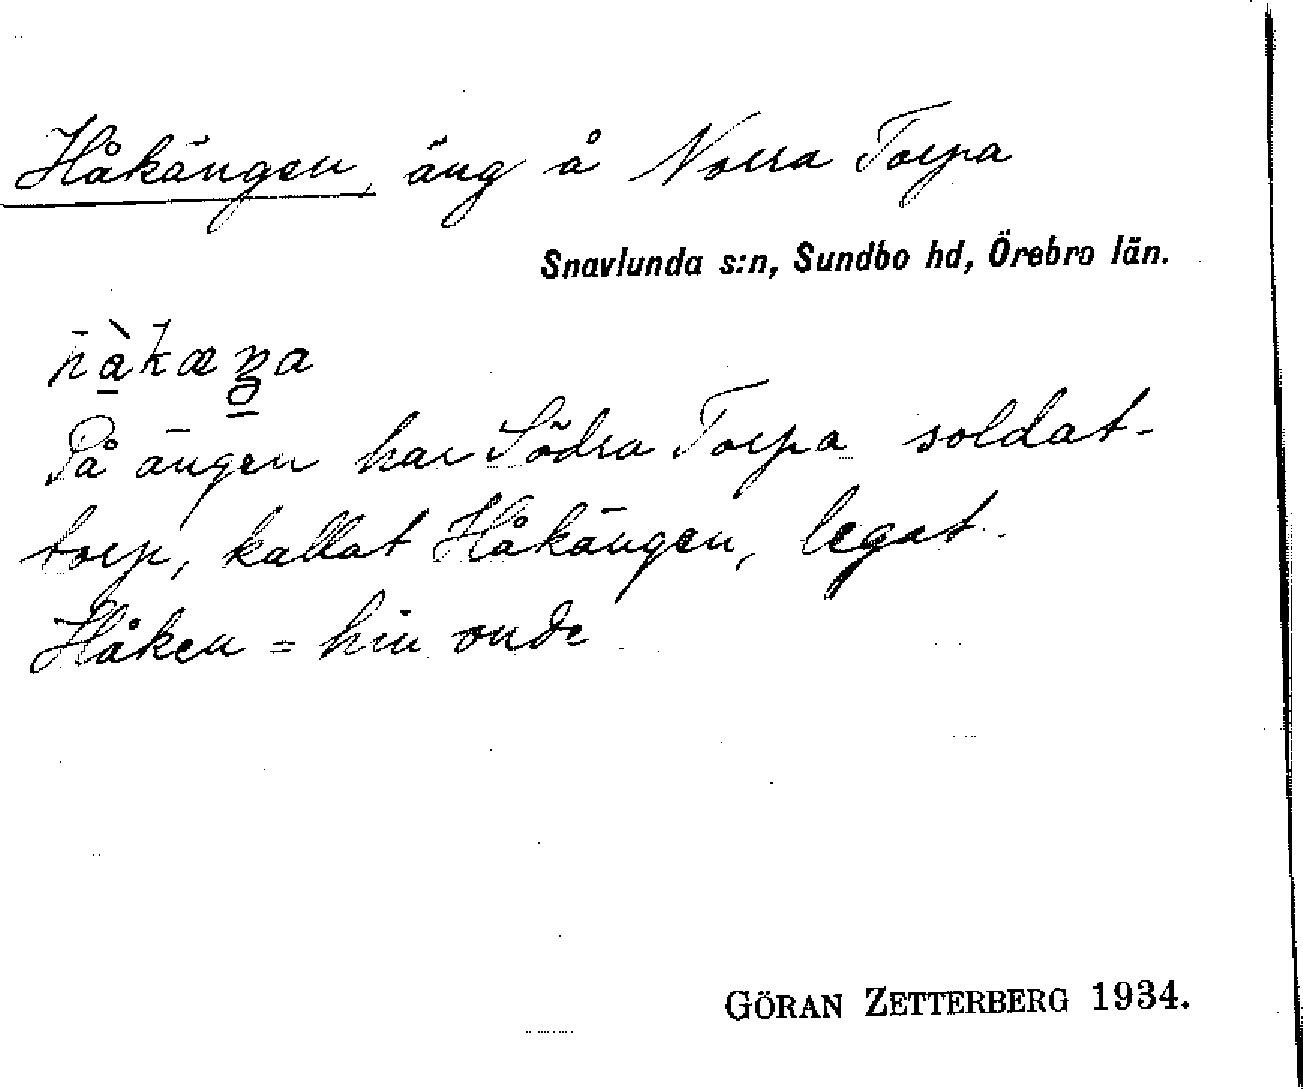 Håkängen, äng å Norra Torpa
Snavlunda s:n, Sundbo hd, Örebro län.
På ängen har Södra Torpa soldat-
torp, kallat Håkängen, legat.
Håken = hin onde
GÖRAN ZETTERBERG 1934.